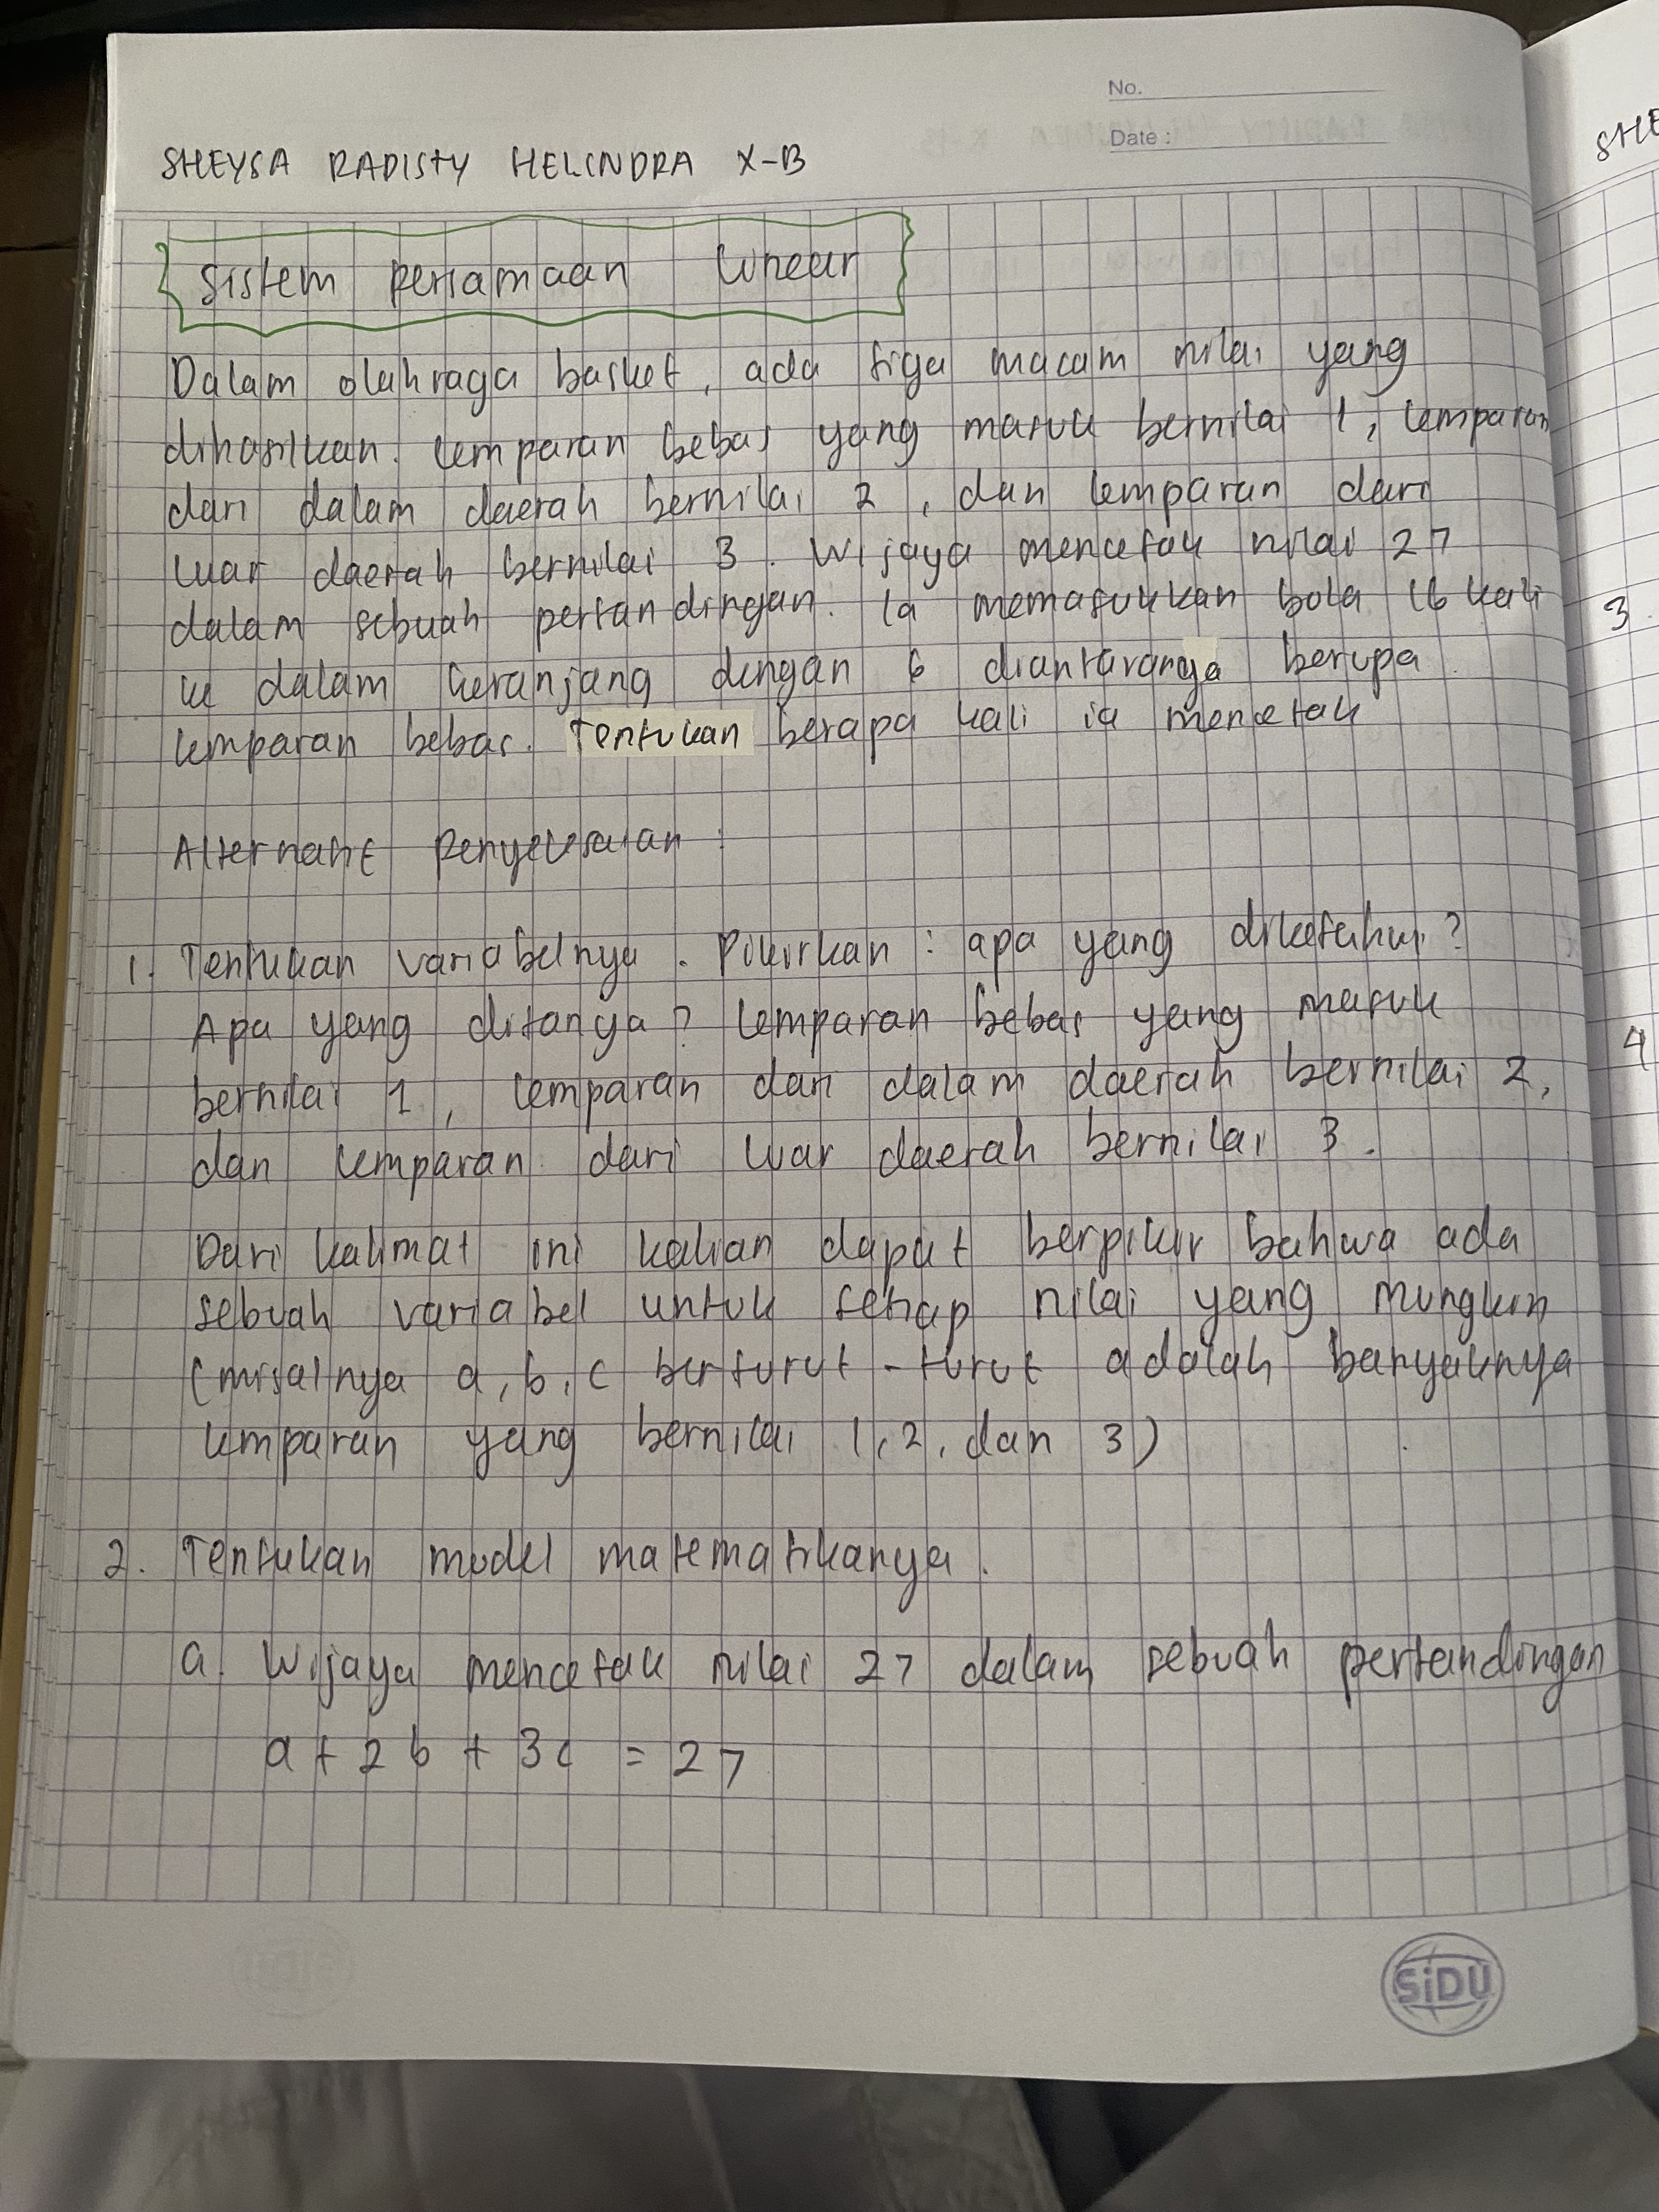 No.
Date :
SHEYSA RADISTY HELINDRA X-B
SHE
Sistem persamaan linear
Dalam olahraga basket, ada tiga macam nilai yang
dihasilkan. lemparan bebas yang masuk bernilai 1, lemparan
dari dalam daerah bernilai 2, dan lemparan dari
luar daerah bernilai 3. Wijaya mencetak nilai 27
dalam sebuah pertandingan. Ia memasukkan bola 16 kali
ke dalam keranjang dengan 6 diantaranya berupa
lemparan bebas. Tentukan berapa kali ia mencetak
Alternatif Penyelesaian :
1. Tentukan variabelnya. Pikirkan : apa yang diketahui?
Apa yang ditanya? lemparan bebas yang masuk
bernilai 1, lemparan dari dalam daerah bernilai 2,
dan lemparan dari luar daerah bernilai 3.
Dari kalimat ini kalian dapat berpikir bahwa ada
sebuah variabel untuk setiap nilai yang mungkin
(misalnya a, b, c berturut-turut adalah banyaknya
lemparan yang bernilai 1, 2, dan 3)
2. Tentukan model matematikanya.
a. Wijaya mencetak nilai 27 dalam sebuah pertandingan
a + 2b + 3c = 27
3.
4
SiDU